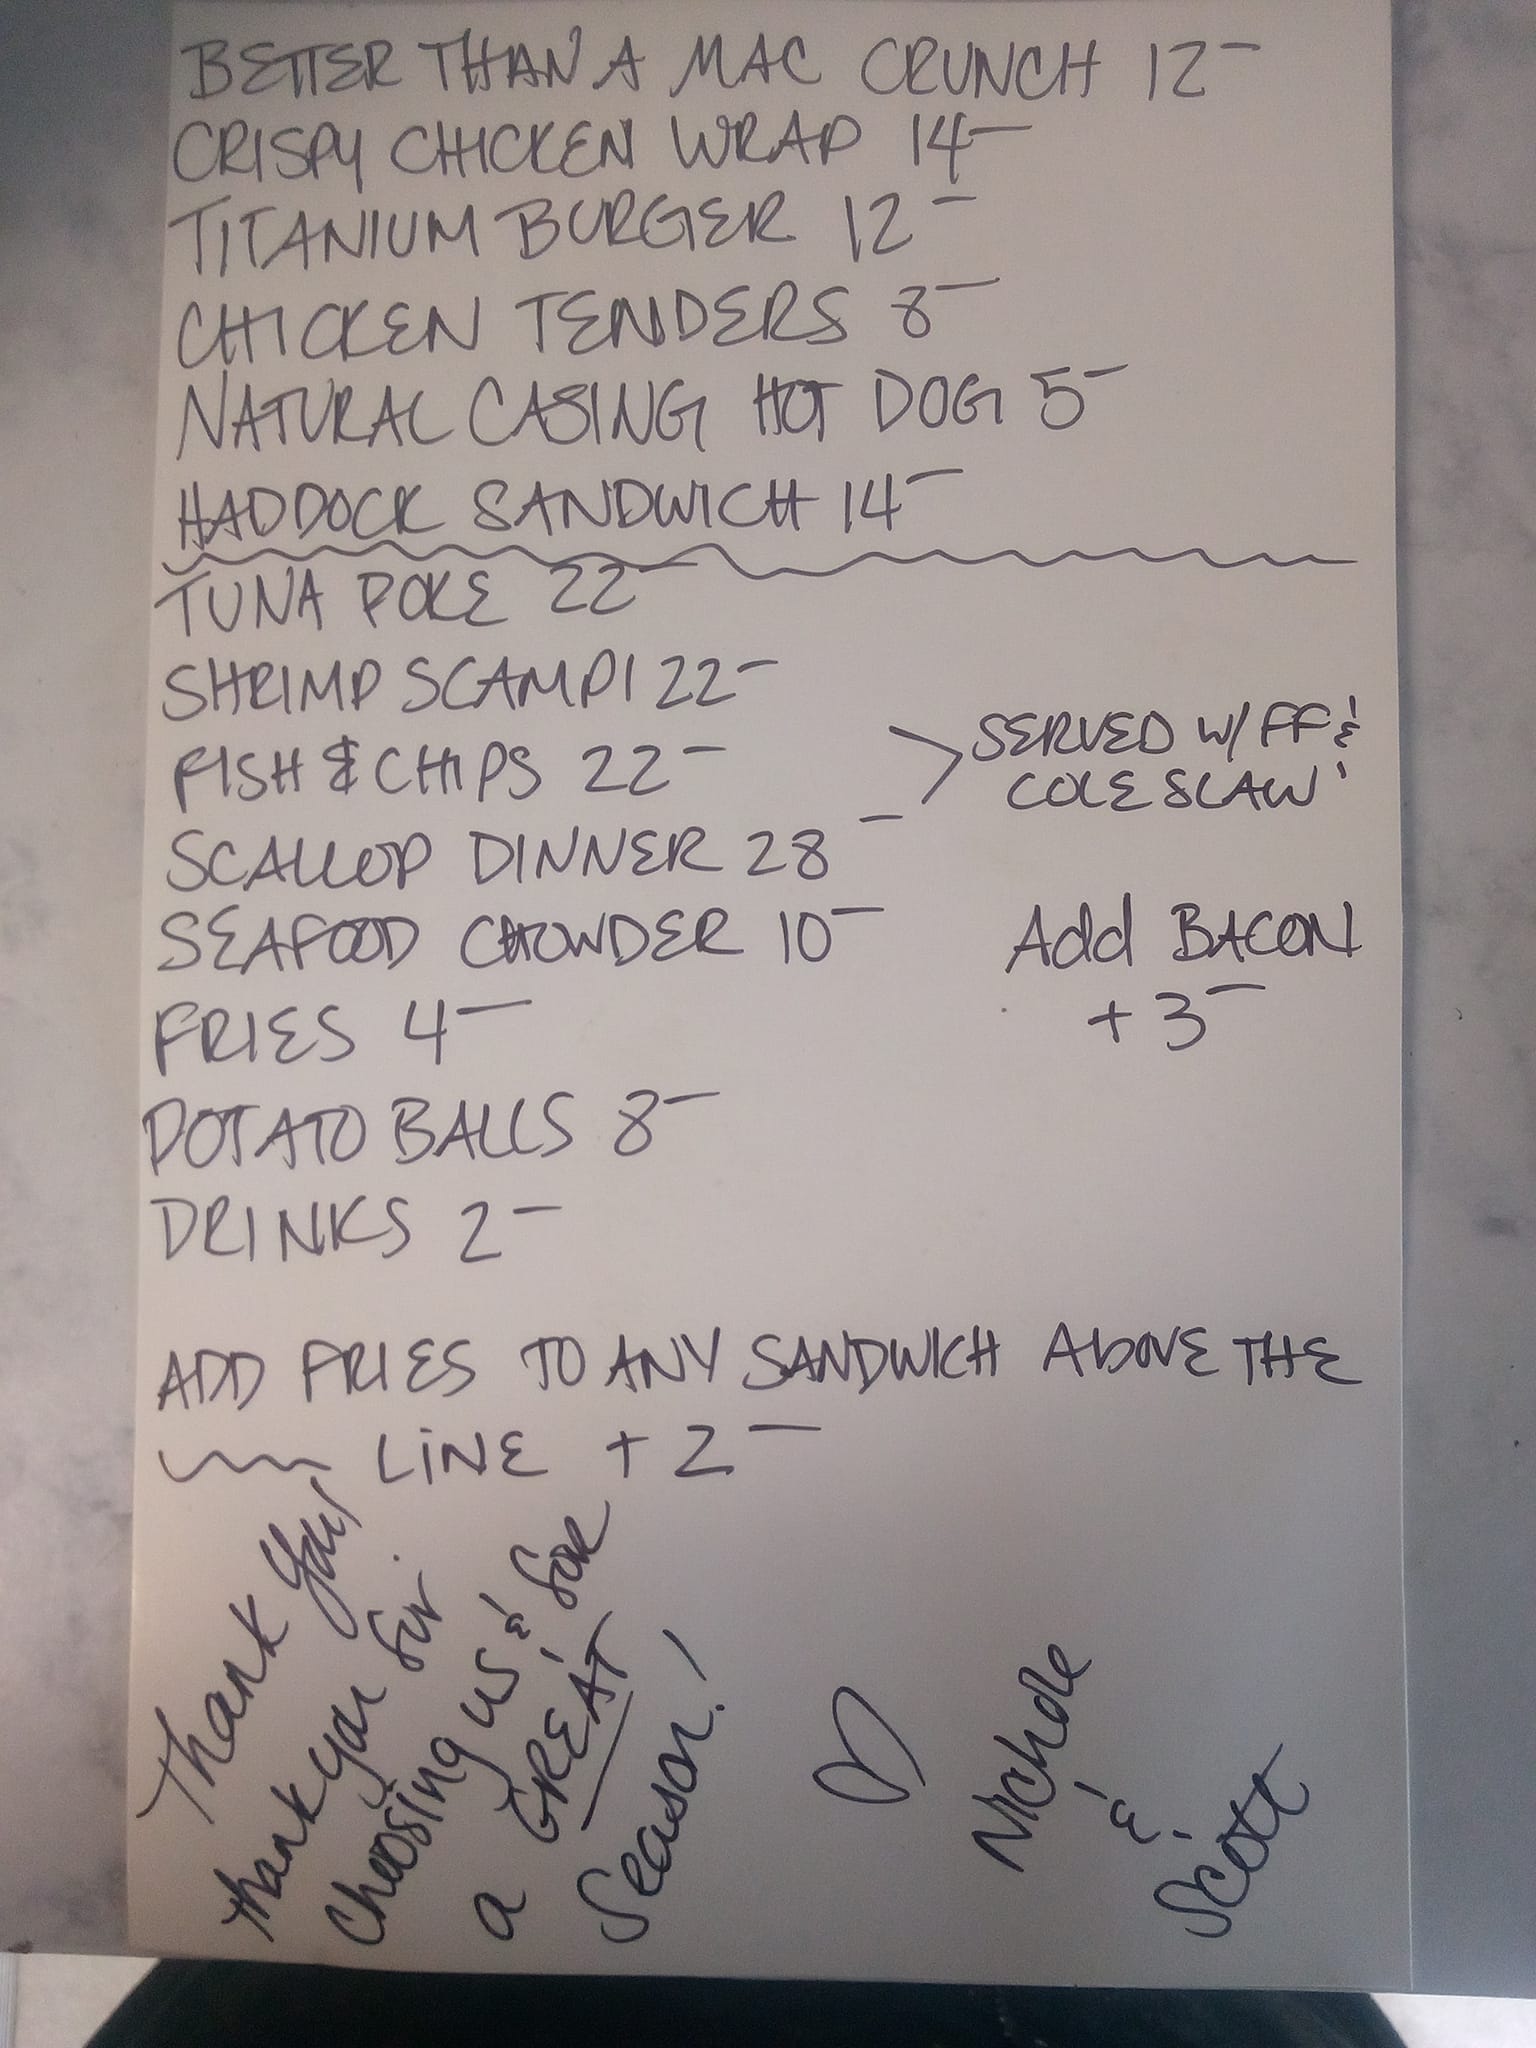 BETTER THAN A MAC CRUNCH 12-
CRISPY CHICKEN WRAP 14-
TITANIUM BURGER 12-
CHICKEN TENDERS 8-
NATURAL CASING HOT DOG 5-
HADDOCK SANDWICH 14-
TUNA POKE 22-
SHRIMP SCAMPI 22-
FISH & CHIPS 22-
SERVED W/ FF &
COLE SLAW
SCALLOP DINNER 28-
SEAFOOD CHOWDER 10-
Add BACON
+3-
FRIES 4-
POTATO BALLS 8-
DRINKS 2-
ADD FRIES TO ANY SANDWICH ABOVE THE
LINE +2-
Thank You!
thank you for
choosing us & for
a GREAT
Season!
Nichole
&
Scott